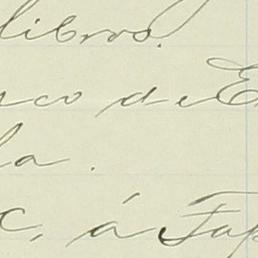 libros.
nco de E
la.
c, á Fap